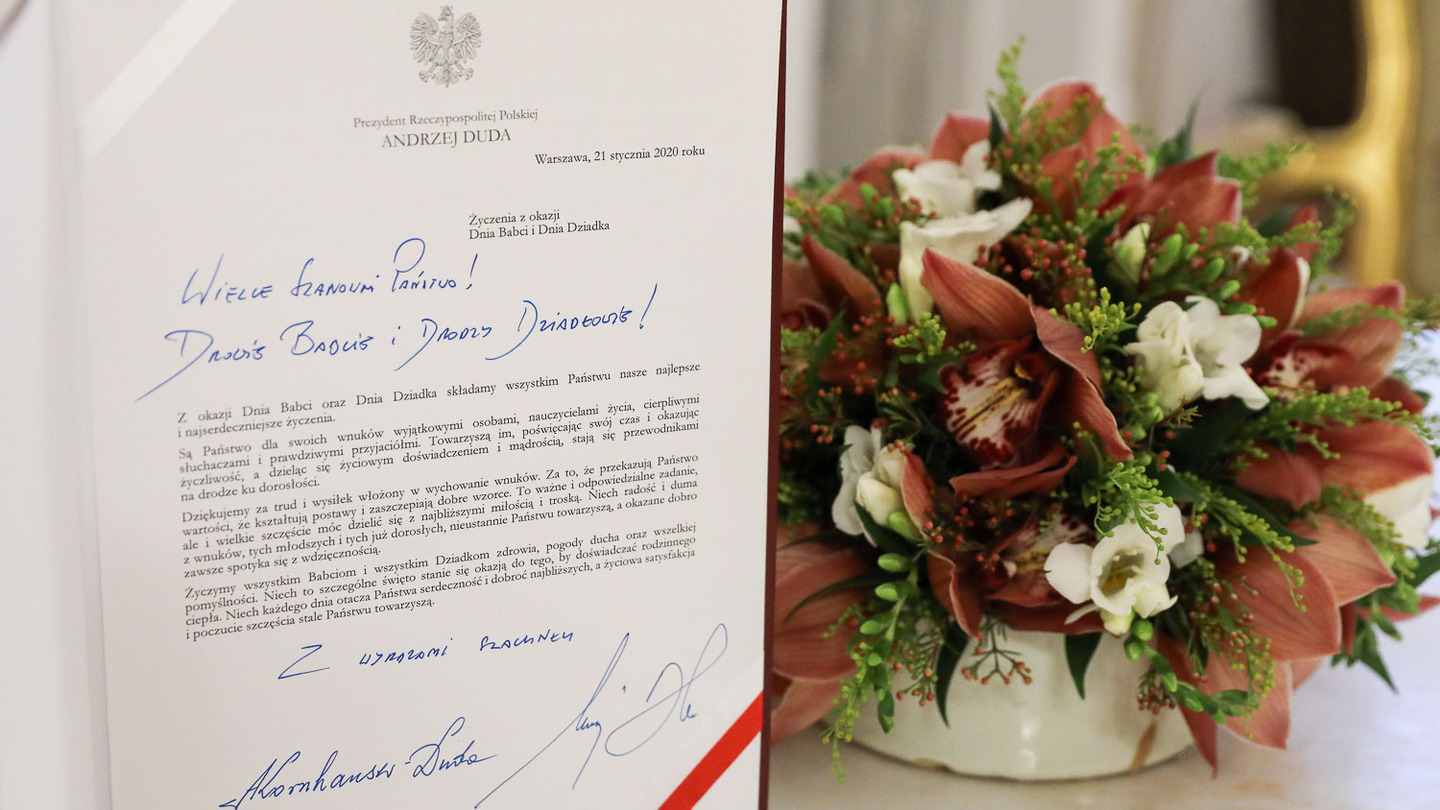 Prezydent Rzeczypospolitej Polskiej
ANDRZEJ DUDA
Warszawa, 21 stycznia 2020 roku
Życzenia z okazji
Dnia Babci i Dnia Dziadka
WIELCE SZANOWNI PAŃSTWO!
DROGIE BABCIE i DRODZY DZIADKOWIE!
Z okazji Dnia Babci oraz Dnia Dziadka składamy wszystkim Państwu nasze najlepsze
i najserdeczniejsze życzenia.
Są Państwo dla swoich wnuków wyjątkowymi osobami, nauczycielami życia, cierpliwymi
słuchaczami i prawdziwymi przyjaciółmi. Towarzyszą im, poświęcając swój czas i okazując
życzliwość, a dzieląc się życiowym doświadczeniem i mądrością, stają się przewodnikami
na drodze ku dorosłości.
Dziękujemy za trud i wysiłek włożony w wychowanie wnuków. Za to, że przekazują Państwo
wartości, że kształtują postawy i zaszczepiają dobre wzorce. To ważne i odpowiedzialne zadanie,
ale i wielkie szczęście móc dzielić się z najbliższymi miłością i troską. Niech radość i duma
z wnuków, tych młodszych i tych już dorosłych, nieustannie Państwu towarzyszą, a okazane dobro
zawsze spotyka się z wdzięcznością.
Życzymy wszystkim Babciom i wszystkim Dziadkom zdrowia, pogody ducha oraz wszelkiej
pomyślności. Niech to szczególne święto stanie się okazją do tego, by doświadczać rodzinnego
ciepła. Niech każdego dnia otacza Państwa serdeczność i dobroć najbliższych, a życiowa satysfakcja
i poczucie szczęścia stale Państwu towarzyszą.
Z WYRAZAMI SZACUNKU
AKornhauser-Duda